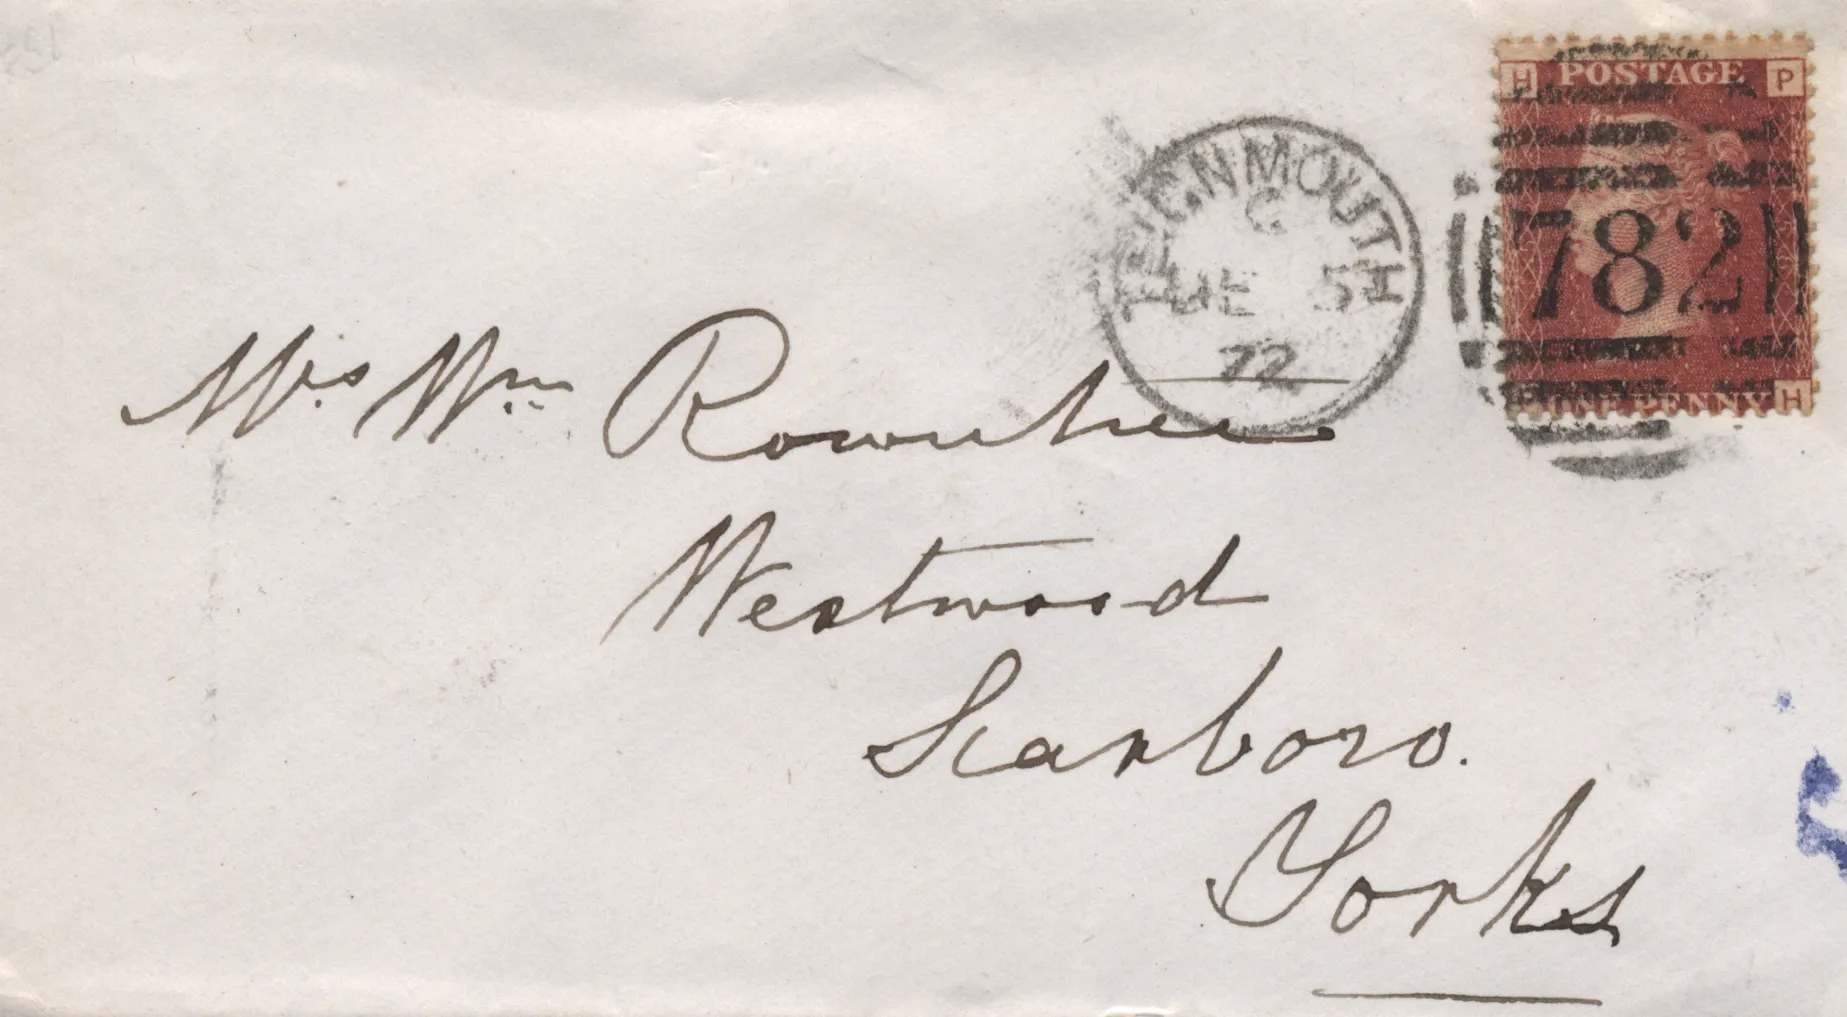 H POSTAGE P
782
ONE PENNY H
TEIGNMOUTH
G
DE 5
72
Mrs Wm Rowntree
Westwood
Scarboro.
Yorks